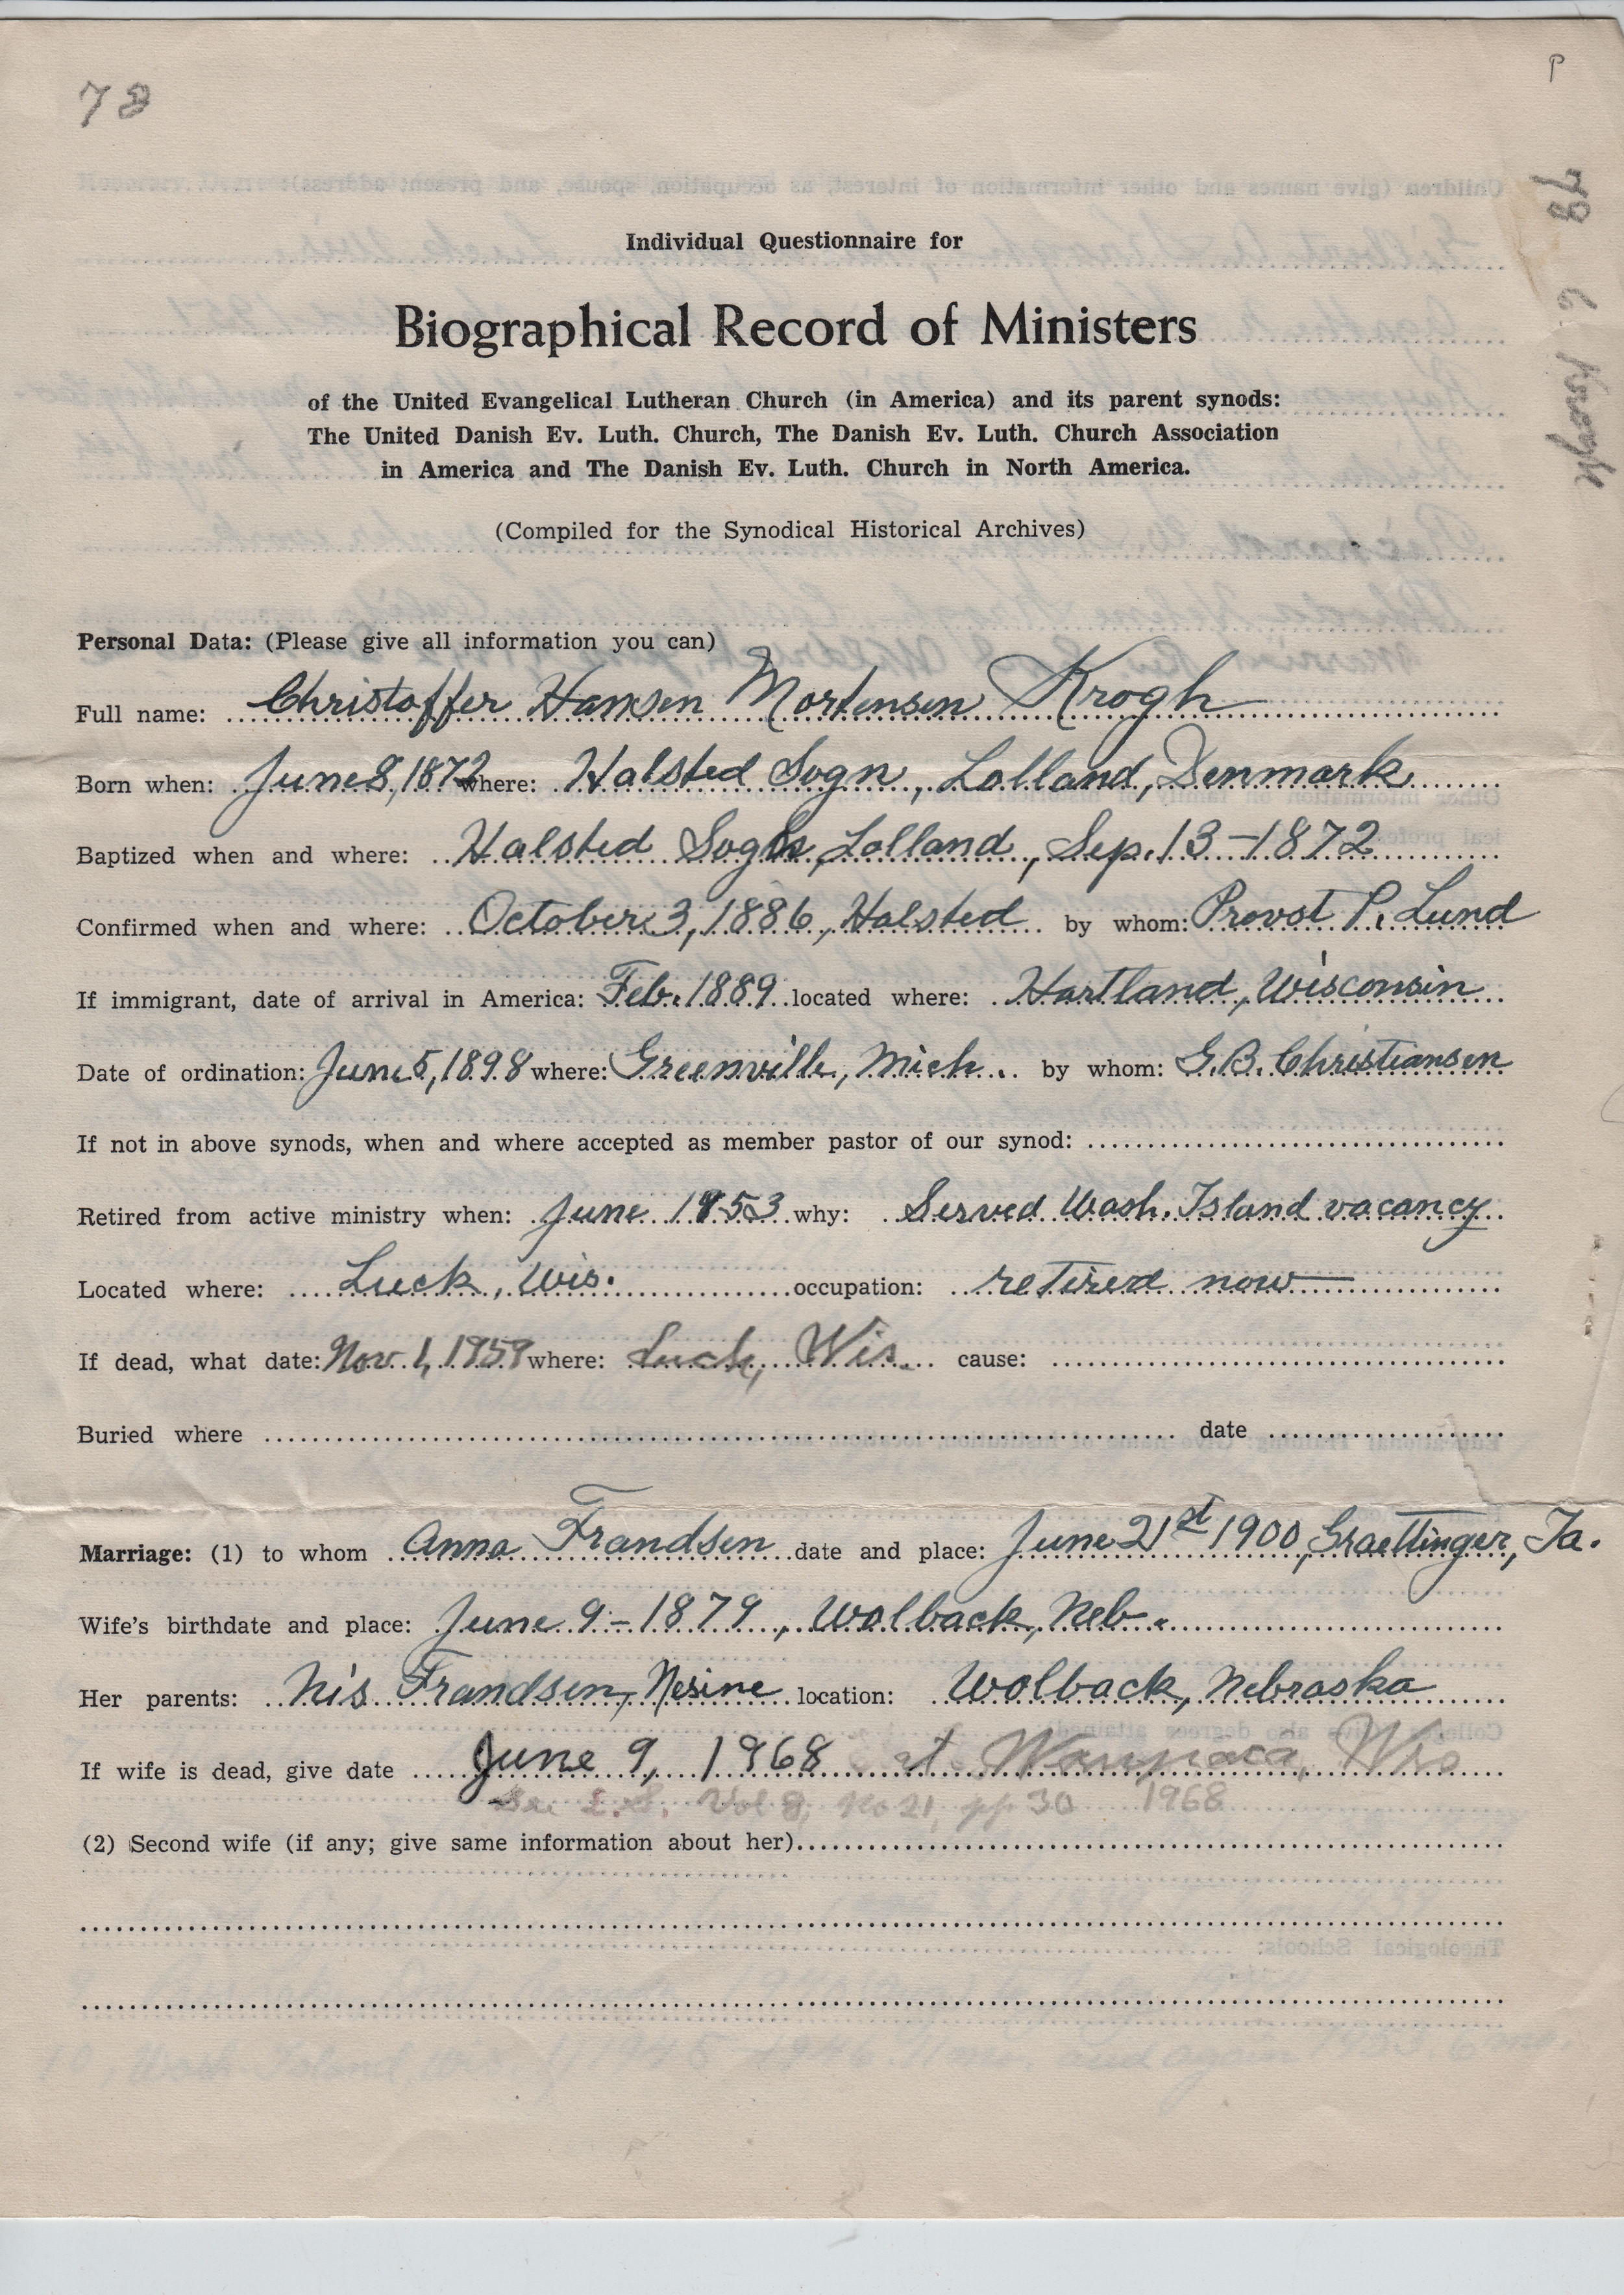 78
P
78 C Krogh
Individual Questionnaire for
Biographical Record of Ministers
of the United Evangelical Lutheran Church (in America) and its parent synods:
The United Danish Ev. Luth. Church, The Danish Ev. Luth. Church Association
in America and The Danish Ev. Luth. Church in North America.
(Compiled for the Synodical Historical Archives)
Personal Data: (Please give all information you can)
Full name: Christoffer Hansen Mortensen Krogh
Born when: June 8, 1872 where: Halsted Sogn, Lolland, Denmark
Baptized when and where: Halsted Sogn, Lolland, Sep. 13-1872
Confirmed when and where: October 3, 1886, Halsted by whom: Provst P. Lund
If immigrant, date of arrival in America: Feb. 1889 located where: Hartland, Wisconsin
Date of ordination: June 5, 1898 where: Greenville, Mich. by whom: G.B. Christiansen
If not in above synods, when and where accepted as member pastor of our synod:
Retired from active ministry when: June 1953 why: Served Wash. Island vacancy
Located where: Luck, Wis. occupation: retired now
If dead, what date: Nov. 1, 1959 where: Luck, Wis. cause:
Buried where date
Marriage: (1) to whom Anna Frandsen date and place: June 21st 1900, Graettinger, Ia.
Wife's birthdate and place: June 9-1879, Wolback, Neb.
Her parents: Nis Frandsen, Nesine location: Wolback, Nebraska
If wife is dead, give date June 9, 1968 at Waupaca, Wis
See L.S. Vol 8, No 21, pp 30 1968
(2) Second wife (if any; give same information about her)